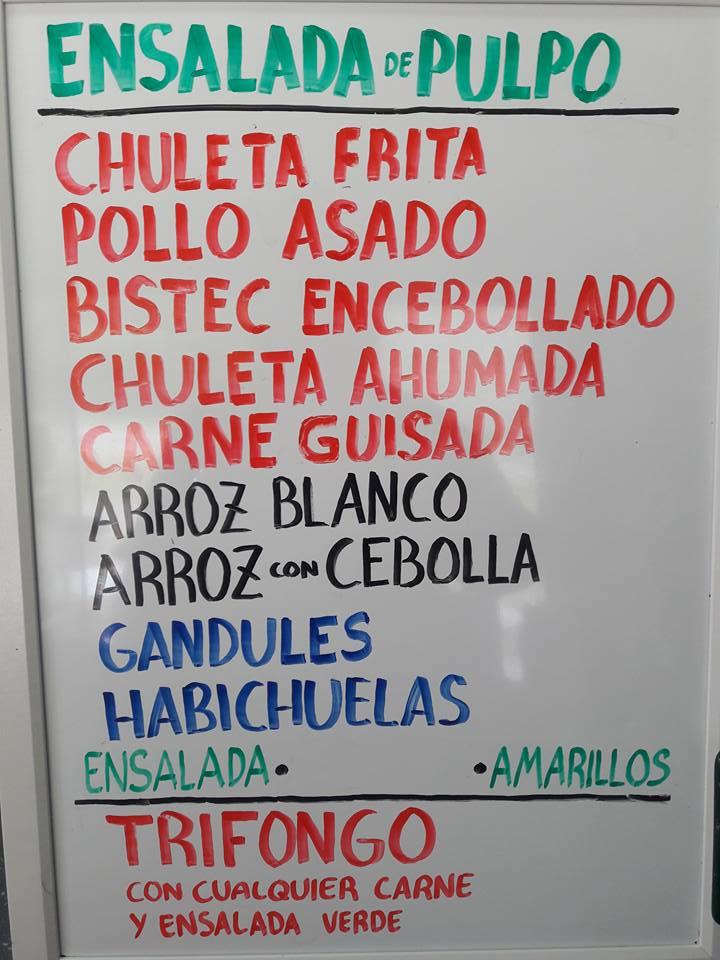 ENSALADA DE PULPO
CHULETA FRITA
POLLO ASADO
BISTEC ENCEBOLLADO
CHULETA AHUMADA
CARNE GUISADA
ARROZ BLANCO
ARROZ CON CEBOLLA
GANDULES
HABICHUELAS
ENSALADA • • AMARILLOS
TRIFONGO
CON CUALQUIER CARNE
Y ENSALADA VERDE